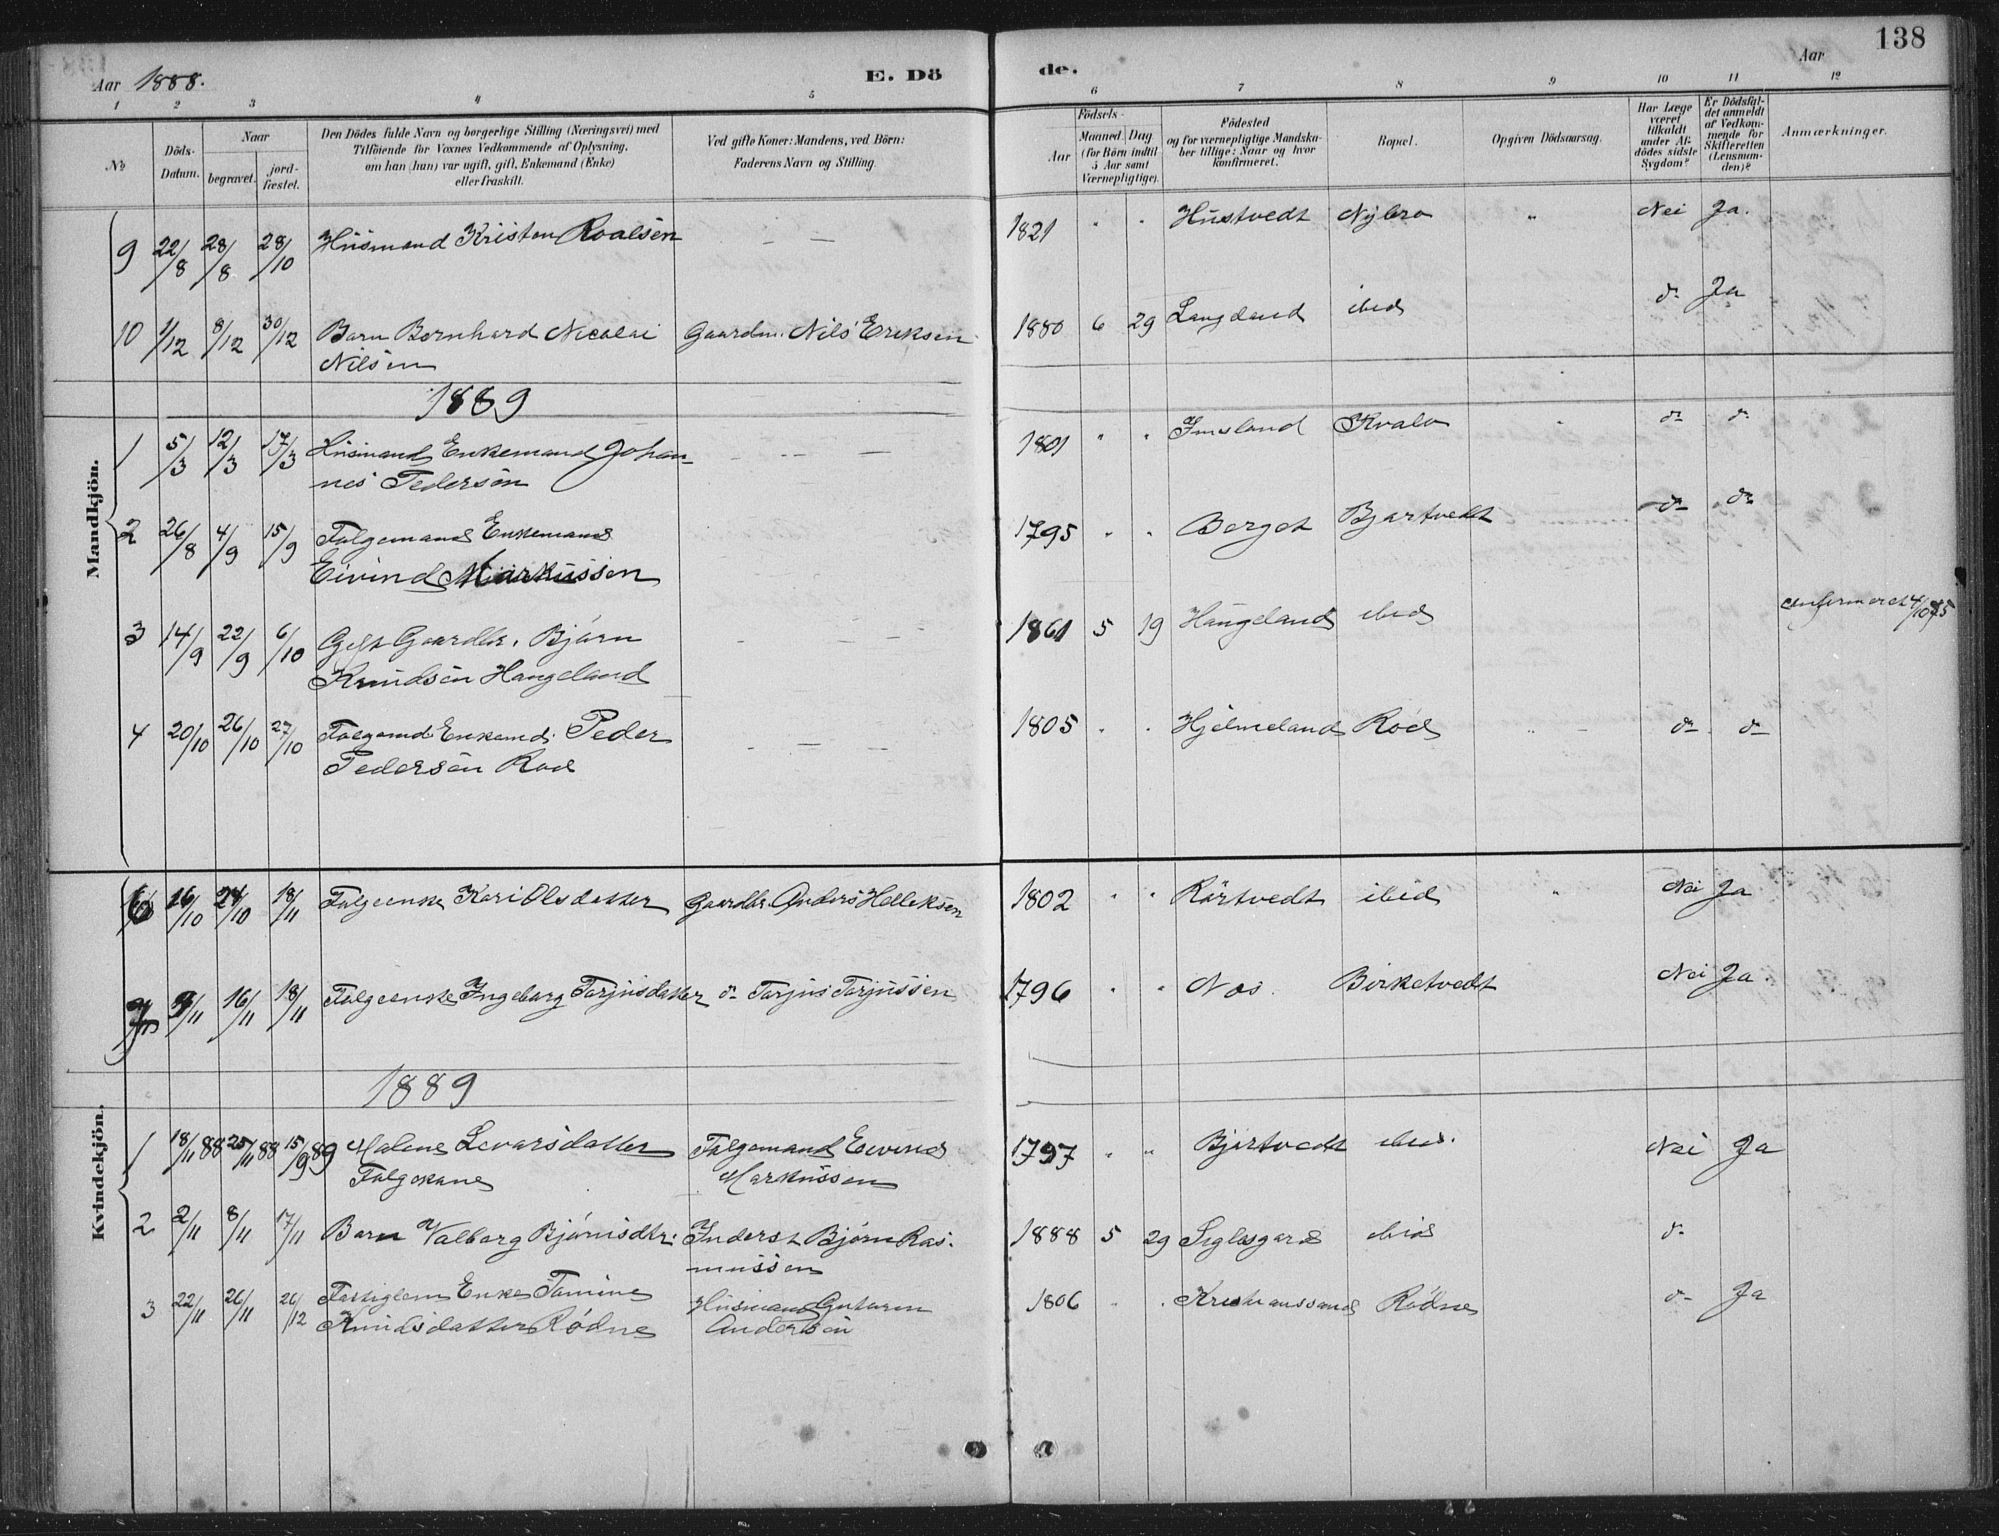 Aar 1888. E. Dö de. Aar 138
1 2 3 4 5 6 7 8 9 10 11 12
No
Döds-Datum.
Naar
begravet.
jord-fæstet.
Den Dödes fulde Navn og borgerlige Stilling (Næringsvei) med
Tilföiende for Voxnes Vedkommende af Oplysning,
om han (hun) var ugift, gift, Enkemand (Enke)
eller fraskilt.
Ved gifte Koner: Mandens, ved Börn:
Faderens Navn og Stilling.
Födsels-
Aar
Maaned. Dag
(for Börn indtil
5 Aar samt
Værnepligtige).
Födested
og for værnepligtige Mandska-
ber tillige: Naar og hvor
konfirmeret.
Bopæl.
Opgiven Dödsaarsag.
Har Læge
været
tilkaldt
under Af-
dödes sidste
Sygdom?
Er Dödsfal-
det anmeldt
af Vedkom-
mende for
Skifteretten
(Lensman-
den)?
Anmærkninger.
Mandkjön.
9 22/8 28/8 28/10 Husmand Kristen Roalsen — — 1821 " " Hustvedt Nybro " Nei Ja.
10 1/12 8/12 30/12 Barn Bernhard Nicolai Gaardm. Nils Eriksen 1880 6 29 Langeland ibid do Ja
Nilsen
1889
1 5/3 12/3 17/3 Husmand Enkemand Johan- — — 1801 " " Imsland Kvalo do do
nes Pedersen
2 26/8 4/9 15/9 Folgemand Enkemand 1795 " " Berget Bjartvedt do do
Eivind Markussen
3 14/9 22/9 6/10 Gift Gaardbr. Bjørn — — 1861 5 19 Haugeland ibid confirmeret 4/10 75
Knudsen Haugeland
4 20/10 26/10 27/10 Folgemd. Enkemd. Peder — — 1805 " " Hjelmeland Rød do do
Pedersen Rød
Kvindekjön.
6 16/10 24/10 18/11 Folgeenke Kari Olsdatter Gaardbr. Anders Helleksen 1802 " " Rørtvedt ibid " Nei Ja
7 9/11 16/11 18/11 Folgeenke Ingeborg Tarjusdatter do Tarjus Tarjussen 1796 " " Næs Birketvedt Nei Ja
1889
1 18/11 88 25/11 88 15/9 89 Malene Levarsdatter Folgemand Eivind 1797 " " Bjørtvedt ibid. Nei Ja
Folgekone Markussen
2 2/11 8/11 17/11 Barn Valborg Bjørnsdtr. Inderst Bjørn Ras- 1888 5 29 Siglesgard ibid do
mussen
3 22/11 26/11 26/12 Fattiglem Enke Tomine Husmand Guttorm 1806 " " Kristianssand Rødne do Ja
Knudsdatter Rødne Andersen